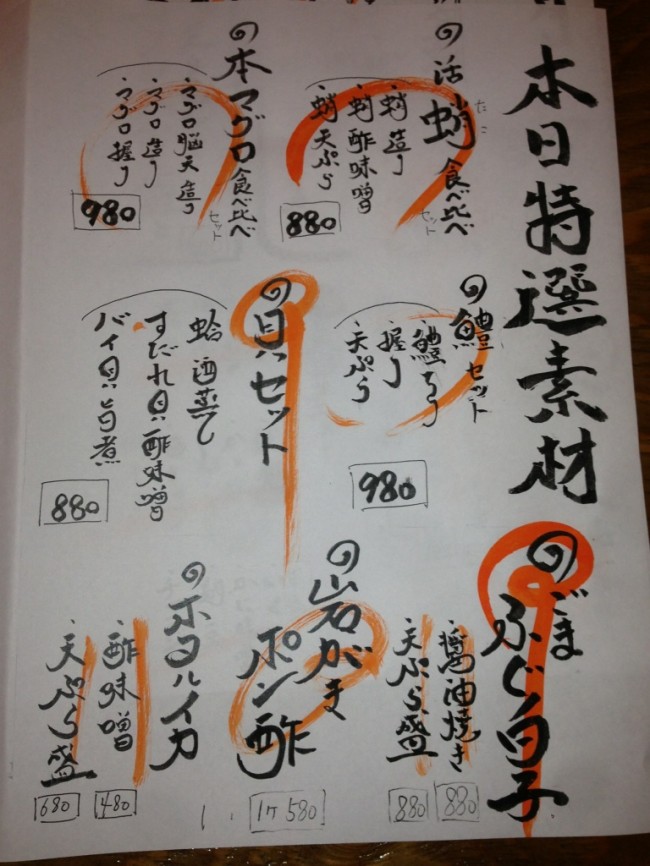 本日特選素材
の活蛸食べ比べセット
たこ
・蛸造り
・蛸酢味噌
・蛸天ぷら
880
の本マグロ食べ比べセット
・マグロ脳天造り
・マグロ造り
・マグロ握り
980
の鱧セット
・鱧ちり
・握り
・天ぷら
980
の貝セット
蛤酒蒸し
すだれ貝酢味噌
バイ貝旨煮
880
のごまふぐ白子
・醤油焼き
880
・天ぷら盛
880
の岩がき
ポン酢
1ケ580
のホタルイカ
・酢味噌
480
・天ぷら盛
680